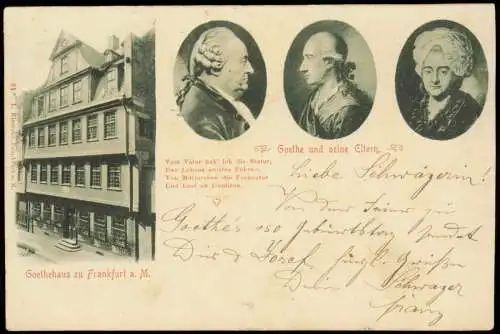 Goethe und seine Eltern.
Vom Vater hab' ich die Statur,
Des Lebens ernstes Führen,
Von Mütterchen die Frohnatur
Und Lust zu fabuliren.
Goethehaus zu Frankfurt a. M.
Liebe Schwägerin!
Von der Feier zu
Goethe's 150 Geburtstag sendet
Dir & Josef, herzl. Grüsse
Dein Schwager
Franz